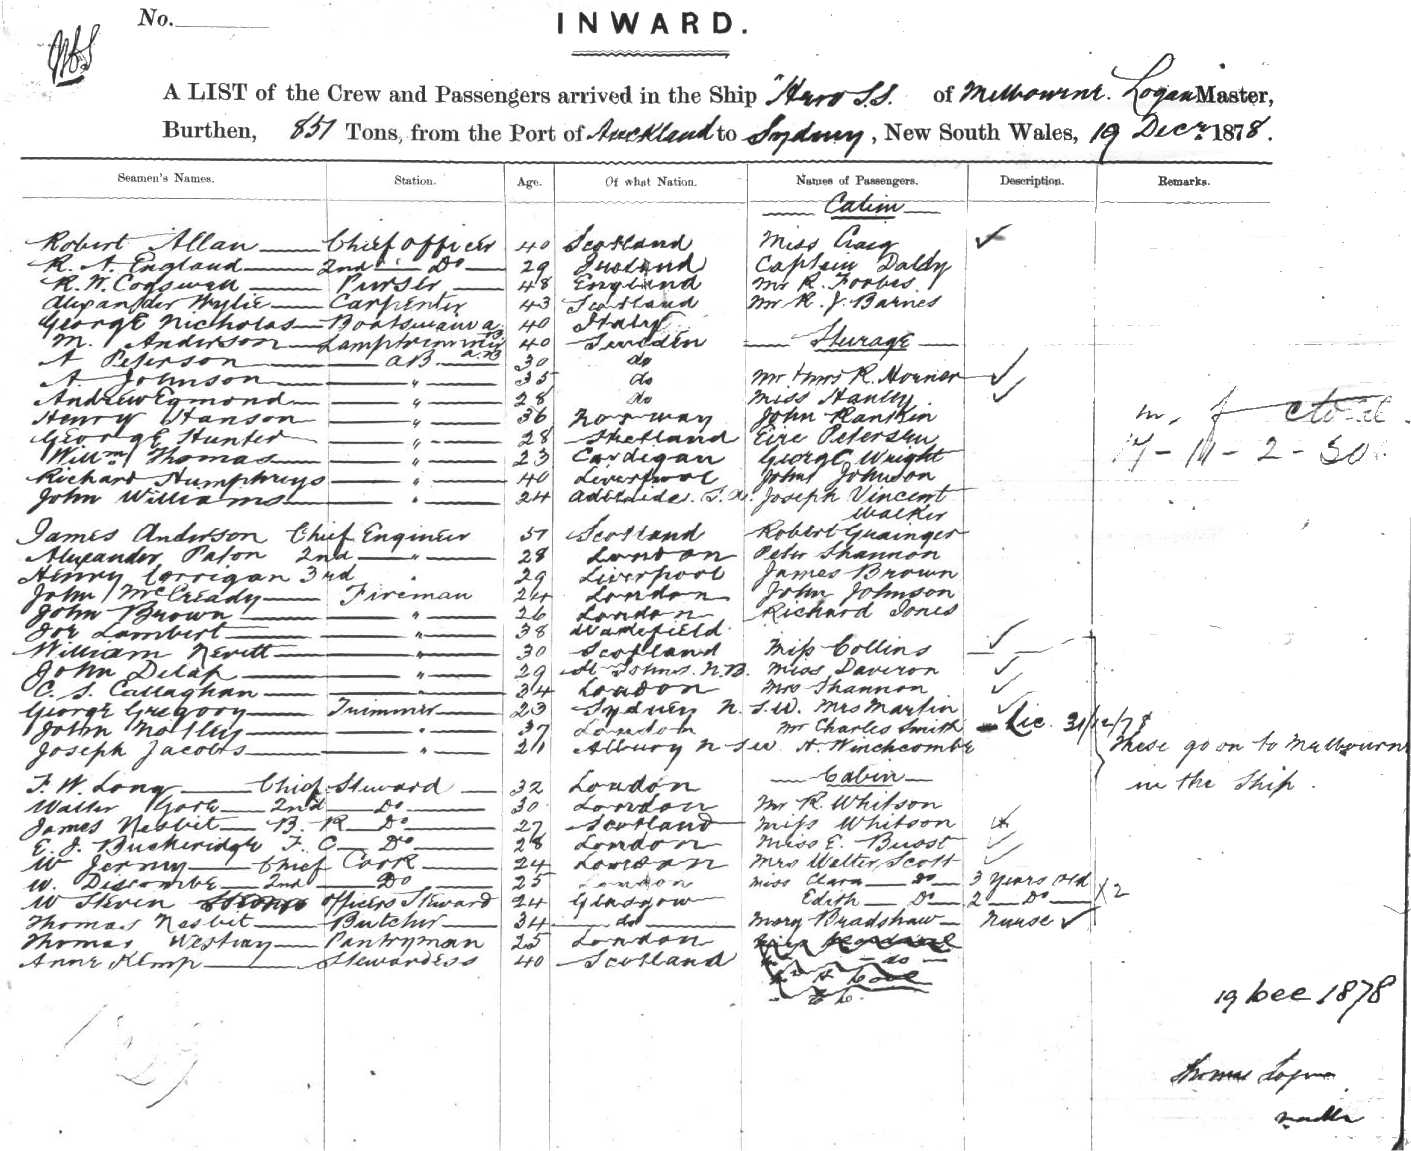 No.
INWARD.
A LIST of the Crew and Passengers arrived in the Ship "Hero S.S. of Melbourne. Logan Master,
Burthen, 851 Tons, from the Port of Auckland to Sydney, New South Wales, 19 Decr. 1878.
Seamen's Names. Station. Age. Of what Nation. Names of Passengers. Description. Remarks.
Cabin
Robert Allan Chief Officer 40 Scotland Miss Craig ✓
R. A. England 2nd Do 29 Captain Daldy
R. W. Cogswell Purser 48 England Mr R. Forbes
Alexander Wylie Carpenter 43 Scotland Mr R. J. Barnes
George Nicholas Boatswain 40 Italy
M. Anderson Lamptrimmer A.B 40 Sweden Steerage
A Peterson AB 30 do
A Johnson " 35 do Mr & Mrs R. Horner ✓
Andrew Egmond " 28 do Miss Hanley ✓
Henry Hanson " 36 Norway John Rankin
George Hunter " 28 Shetland Eire Petersen
Willm Thomas " 23 Cardigan George Wright
Richard Humphreys " 40 Liverpool John Johnson
John Williams " 24 Adelaide. S.A. Joseph Vincent
Walker
James Anderson Chief Engineer 51 Scotland Robert Guainger
Alexander Paton 2nd " 28 London Peter Shannon
Henry Corrigan 3rd " 29 Liverpool James Brown
John McCready Fireman 24 London John Johnson
John Brown " 26 London Richard Jones
Joe Lambert " 38 Wakefield
William Nevitt " 30 Scotland Miss Collins ✓
John Delap " 29 St Johns. N.B. Miss Daveron ✓
C. S. Callaghan " 34 London Mrs Shannon ✓
George Gregory Trimmer 23 Sydney N.S.W. Mrs Martin ✓
John Notley " 37 London Mr Charles Smith 31/12/78
Joseph Jacobs " 21 Albury N.S.W A. Winchcombe
These go on to Melbourne
in the Ship.
Cabin
F. W. Long Chief Steward 32 London
Walter Gore 2nd Do 30 London Mr R. Whitson
James Nesbit B. R Do 27 Scotland Miss Whitson
E. J. Buckeridge F. C Do 28 London Miss E. Busst ✓
W Jermy Chief Cook 24 London Mrs Walter Scott ✓
W. Discombe 2nd Do 25 London Miss Clara Do 3 Years old
W Steven Officers Steward 24 Glasgow Edith Do 2 Do X2
Thomas Nesbit Butcher 34 do Mary Bradshaw Nurse ✓
Thomas Westray Pantryman 25 London
Anne Kemp Stewardess 40 Scotland do
19 Dec 1878
Thomas Logan